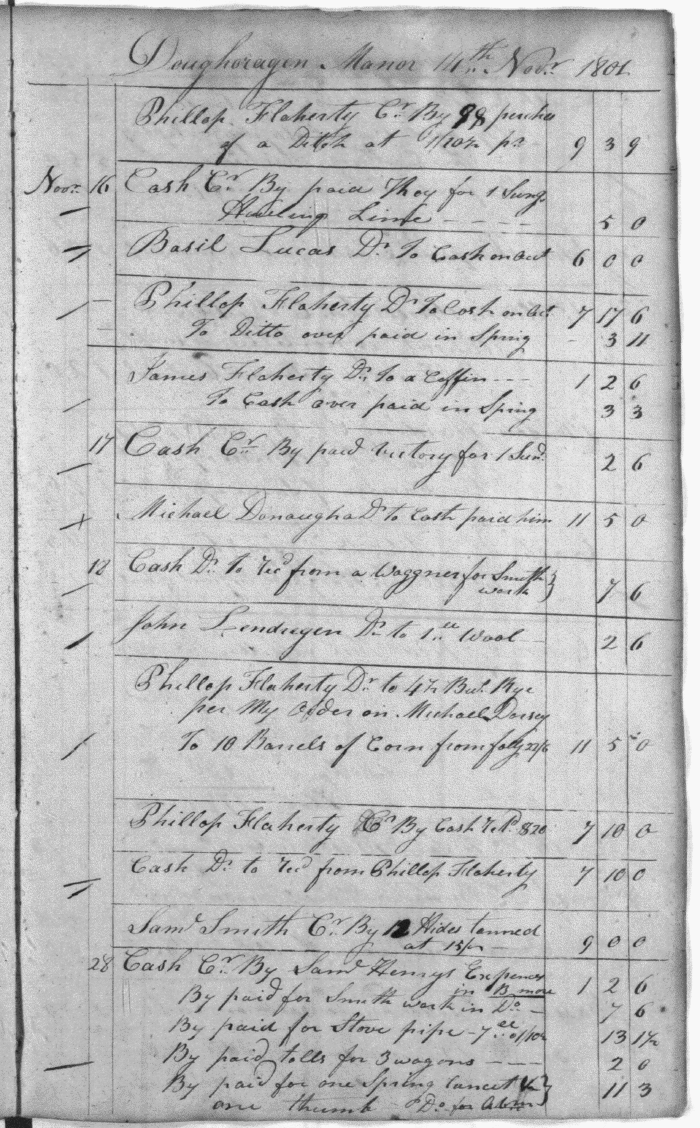 Doughoragen Manor 14th Novr. 1801
Phillop Flaherty Cr. By 98 perches
of a Ditch at 1/10½ pr 9 3 9
Novr. 16 Cash Cr. By paid They for 1 Sung
Hauling Lime - - - - 5 0
Basil Lucas Dr. To Cash on Act 6 0 0
Phillop Flaherty Dr To Cash on Act 7 17 6
To Ditto over paid in Spring - 3 11
James Flaherty Dr. To a Coffin - - - 1 2 6
To Cash over paid in Spring 3 3
17 Cash Cr. By paid Victory for 1 2 6
Michael Donaugha Dr to Cash paid him 11 5 0
18 Cash Dr. To Recd from a Waggner for Smith
work } 7 6
John Dr. to 1 Wool - 2 6
Phillop Flaherty Dr. to 4½ But. Rye
per My Order on Michael Dorsey
To 10 Barrels of Corn from folly 22/6 11 5 0
Phillop Flaherty Cr. By Cash 820 7 10 0
Cash Dr. to Recd from Phillop Flaherty 7 10 0
Saml Smith Cr. By 12 Hides tanned
at 15/ 9 0 0
28 Cash Cr. By Saml Henrys Expences
in B. more 1 2 6
By paid for Smith work in Do - 7 6
By paid for Stove pipe - 7 @ 1/10½ 13 1½
By paid tolls for 3 wagons - - - - 2 0
By paid for one Spring Lancet &
one thumb Do for } 11 3